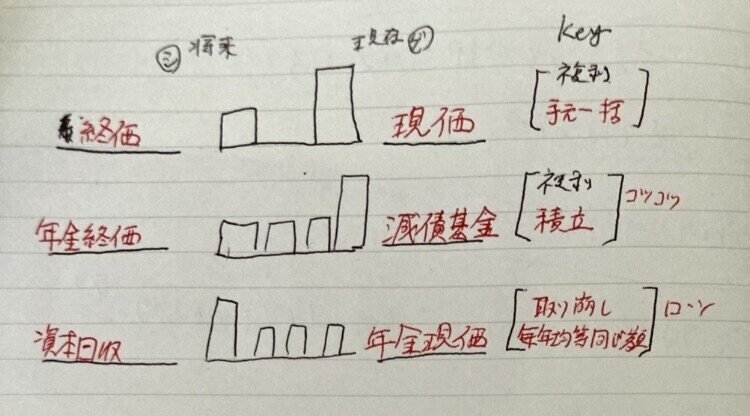 シ 将来 現在 ゲ Key
終価 現価 複利
手元一括
年金終価 減債基金 複利
積立 コツコツ
資本回収 年金現価 取り崩し
毎年均等同じ額 ローン